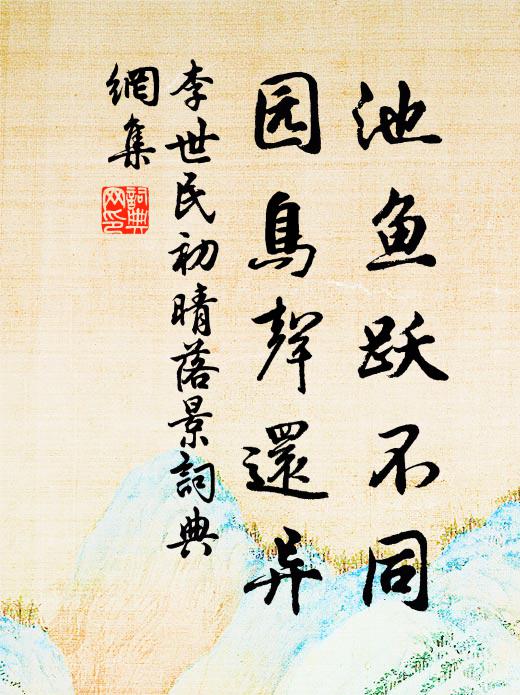 池鱼跃不同
园鳥聲還异
李世民初晴落景詞典
網集
詞典
网印